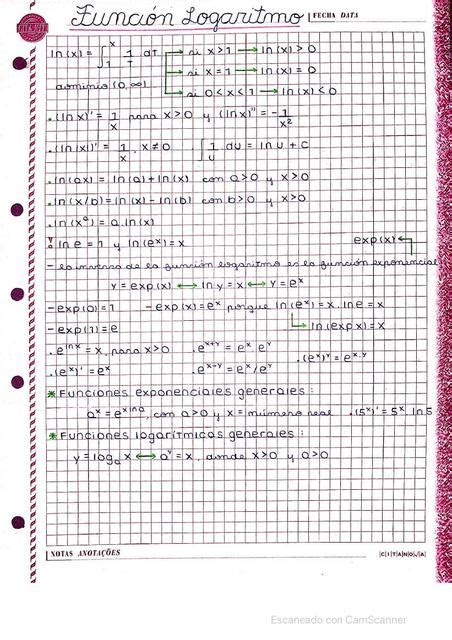 Función Logaritmo
FECHA DATA
ln(x) = ∫₁ˣ 1/T dT → si x>1 → ln(x)>0
→ si x=1 → ln(x)=0
dominio (0,∞) → si 0<x<1 → ln(x)<0
. (ln x)' = 1/x para x>0 y (ln x)'' = -1/x²
. (ln|x|)' = 1/x, x≠0 . ∫ 1/u du = ln u + c
. ln(ax) = ln(a)+ln(x) con a>0 y x>0
. ln(x/b) = ln(x) - ln(b) con b>0 y x>0
. ln(xᵃ) = a.ln(x)
! ln e = 1 y ln(eˣ) = x exp(x) ←
- la inversa de la función logaritmo es la función exponencial
y = exp(x) ↔ ln y = x ↔ y = eˣ
- exp(0) = 1 - exp(x) = eˣ porque ln(eˣ) = x.ln e = x
- exp(1) = e → ln(exp x) = x
. e^(ln x) = x, para x>0 . eˣ⁺ʸ = eˣ.eʸ
. (eˣ)' = eˣ . eˣ⁻ʸ = eˣ/eʸ . (eˣ)ʸ = e^(x.y)
* Funciones exponenciales generales:
aˣ = e^(x ln a), con a>0 y x = número real . (5ˣ)' = 5ˣ. ln5
* Funciones logarítmicas generales:
y = logₐ x ↔ aʸ = x, donde x>0 y a>0
NOTAS ANOTAÇÕES
CITANOVA
Escaneado con CamScanner